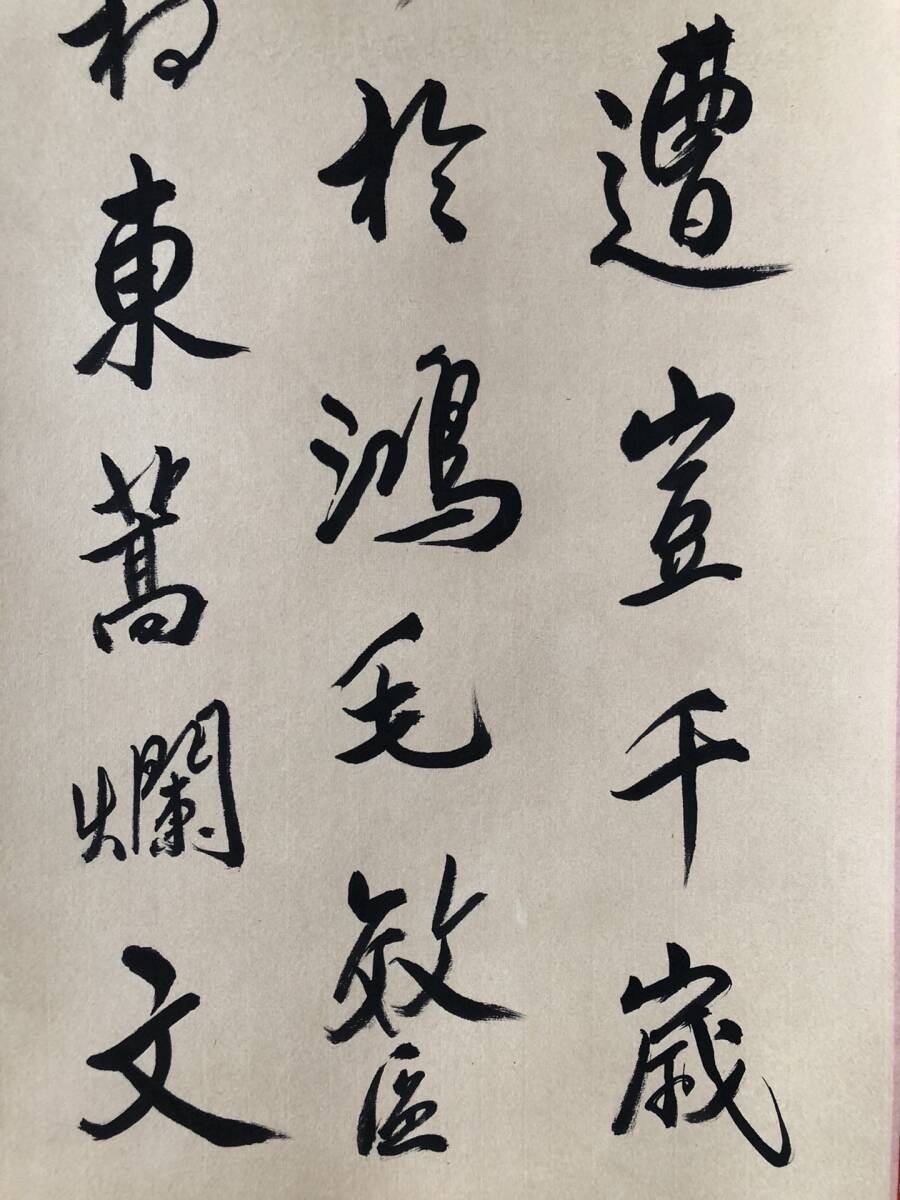 遭豈千歲
於鴻毛效區
東蒿爛文